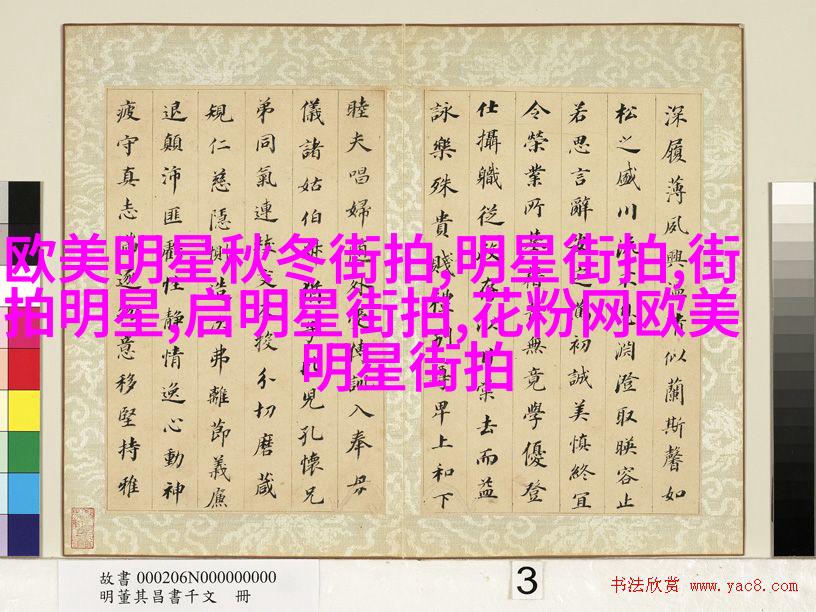 深履薄夙興似蘭斯馨如
松之盛川流淵澄取暎容止
若思言辭初誠美慎終宜
令榮業所無竟學優登
仕攝職從政存以去而益
詠樂殊貴賤禮別尊卑上和下
睦夫唱婦外受傅訓入奉母
儀諸姑伯兒孔懷兄
弟同氣連枝交投分切磨箴
規仁慈隱惻造弗離節義廉
退顛沛匪虧性靜情逸心動神
疲守真志逐意移堅持雅
欧美明星秋冬街拍,明星街拍,街
拍明星,启明星街拍,花粉网欧美
明星街拍
故書 000206N000000000
明董其昌書千文 冊
3
书法欣赏 www.yac8.com